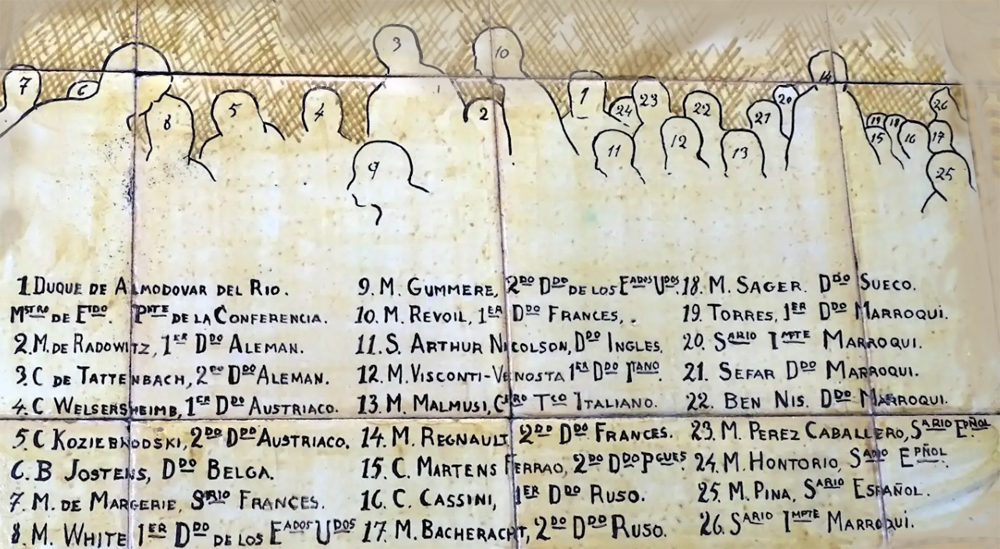 7
6
8
5
4
3
10
2
9
1
24
23
22
21
20
11
12
13
14
19
18
15
16
17
26
25
1 DUQUE DE ALMODOVAR DEL RIO.
MSTRO DE ETDO. PNTE DE LA CONFERENCIA.
2. M. DE RADOWITZ, 1ER DDO ALEMAN.
3. C DE TATTENBACH, 2DO DDO ALEMAN.
4. C WELSERSHEIMB, 1ER DDO AUSTRIACO.
5. C KOZIEBRODSKI, 2DO DDO AUSTRIACO.
6. B JOSTENS, DDO BELGA.
7. M. DE MARGERIE, SRIO FRANCES.
8. M. WHITE 1ER DDO DE LOS EADOS UDOS
9. M. GUMMERE, 2DO DDO DE LOS EADOS UDOS
10. M. REVOIL, 1ER DDO FRANCES,.
11. S. ARTHUR NICOLSON, DDO INGLES.
12. M. VISCONTI-VENOSTA 1ER DDO ITANO
13. M. MALMUSI, TCO ITALIANO.
14. M. REGNAULT 2DO DDO FRANCES.
15. C. MARTENS FERRAO, 2DO DDO PGUES
16. C. CASSINI, 1ER DDO RUSO.
17. M. BACHERACHT, 2DO DDO RUSO.
18. M. SAGER. DDO SUECO.
19. TORRES, 1ER DDO MARROQUI.
20. SARIO IMPTE MARROQUI.
21. SEFAR DDO MARROQUI.
22. BEN NIS. DDO MARROQUI.
23. M. PEREZ CABALLERO, SARIO EPÑOL
24. M. HONTORIO, SARIO EPÑOL.
25. M. PINA, SARIO ESPAÑOL.
26. SARIO IMPTE MARROQUI.